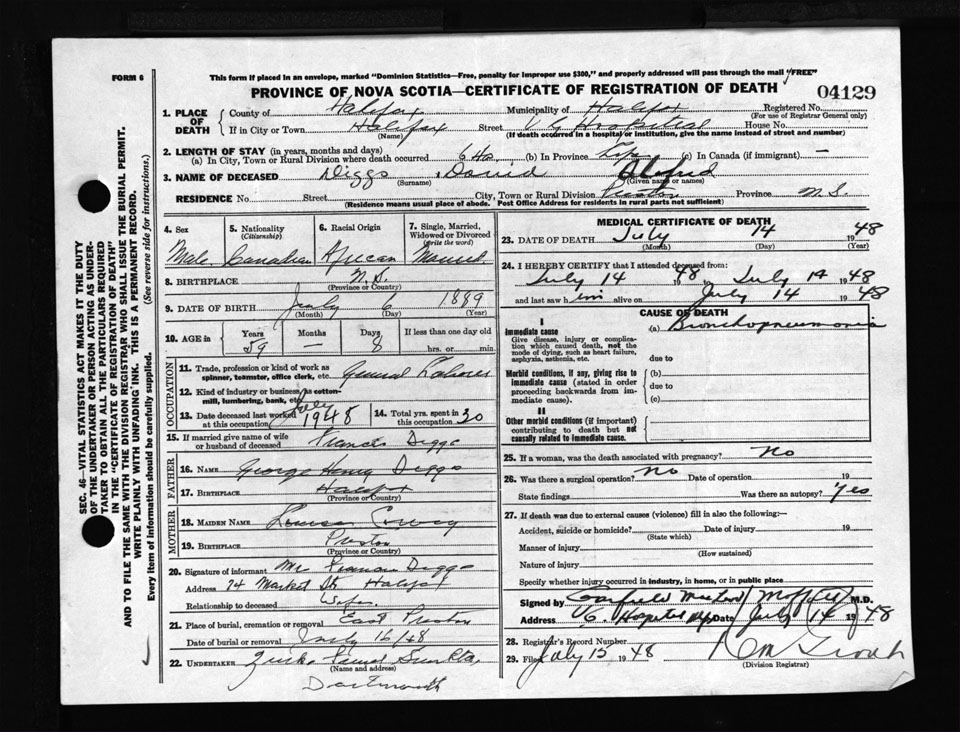 FORM 6
This form if placed in an envelope, marked "Dominion Statistics—Free, penalty for improper use $300," and properly addressed will pass through the mail "FREE"
PROVINCE OF NOVA SCOTIA—CERTIFICATE OF REGISTRATION OF DEATH
04129
1. PLACE OF DEATH
County of Halifax Municipality of Halifax Registered No.
(For use of Registrar General only)
If in City or Town Halifax Street V G Hospital House No.
(Name) (If death occurred in a hospital or institution, give the name instead of street and number)
2. LENGTH OF STAY (in years, months and days)
(a) In City, Town or Rural Division where death occurred 6 (b) In Province Life (c) In Canada (if immigrant) —
3. NAME OF DECEASED Diggs David Alfred
(Surname) (Given name or names)
RESIDENCE No. Street City, Town or Rural Division Preston Province N.S.
(Residence means usual place of abode. Post Office Address for residents in rural parts not sufficient)
4. Sex
Male
5. Nationality (Citizenship)
Canadian
6. Racial Origin
African
7. Single, Married, Widowed or Divorced (write the word)
Married
8. BIRTHPLACE N.S.
(Province or Country)
9. DATE OF BIRTH July 6 1889
(Month) (Day) (Year)
10. AGE in Years Months Days If less than one day old
59 — 8 hrs. or min.
OCCUPATION
11. Trade, profession or kind of work as spinner, teamster, office clerk, etc. General Laborer
12. Kind of industry or business, as cotton-mill, lumbering, bank, etc.
13. Date deceased last worked at this occupation July 1948
14. Total yrs. spent in this occupation 30
15. If married give name of wife or husband of deceased Francis Diggs
FATHER
16. NAME George Henry Diggs
17. BIRTHPLACE Halifax
(Province or Country)
MOTHER
18. MAIDEN NAME Louisa
19. BIRTHPLACE Preston
(Province or Country)
20. Signature of informant Mr Francis Diggs
Address 74 Market St Halifax
Relationship to deceased Wife
21. Place of burial, cremation or removal East Preston
Date of burial or removal July 16/48
22. UNDERTAKER
(Name and address)
Dartmouth
MEDICAL CERTIFICATE OF DEATH
23. DATE OF DEATH July 14 1948
(Month) (Day) (Year)
24. I HEREBY CERTIFY that I attended deceased from:
July 14 1948 to July 14 1948
and last saw him alive on July 14 1948
CAUSE OF DEATH
I
Immediate cause (a) Bronchopneumonia
Give disease, injury or complication which caused death, not the mode of dying, such as heart failure, asphyxia, asthenia, etc.
due to
Morbid conditions, if any, giving rise to immediate cause (stated in order proceeding backwards from immediate cause).
(b)
due to
(c)
II
Other morbid conditions (if important) contributing to death but not causally related to immediate cause.
25. If a woman, was the death associated with pregnancy? No
26. Was there a surgical operation? No Date of operation 19
State findings Was there an autopsy? Yes
27. If death was due to external causes (violence) fill in also the following:—
Accident, suicide or homicide? Date of injury 19
(State which)
Manner of injury
(How sustained)
Nature of injury
Specify whether injury occurred in industry, in home, or in public place
Signed by Garfield M.D.
Address V.G. Hospital Date July 14 1948
28. Registrar's Record Number
29. Filed July 15 1948
(Division Registrar)
SEC. 46—VITAL STATISTICS ACT MAKES IT THE DUTY
OF THE UNDERTAKER OR PERSON ACTING AS UNDER-
TAKER TO OBTAIN ALL THE PARTICULARS REQUIRED
IN THE "CERTIFICATE OF REGISTRATION OF DEATH"
AND TO FILE THE SAME WITH THE DIVISION REGISTRAR WHO SHALL ISSUE THE BURIAL PERMIT.
WRITE PLAINLY WITH UNFADING INK. THIS IS A PERMANENT RECORD.
Every item of information should be carefully supplied. (See reverse side for instructions.)